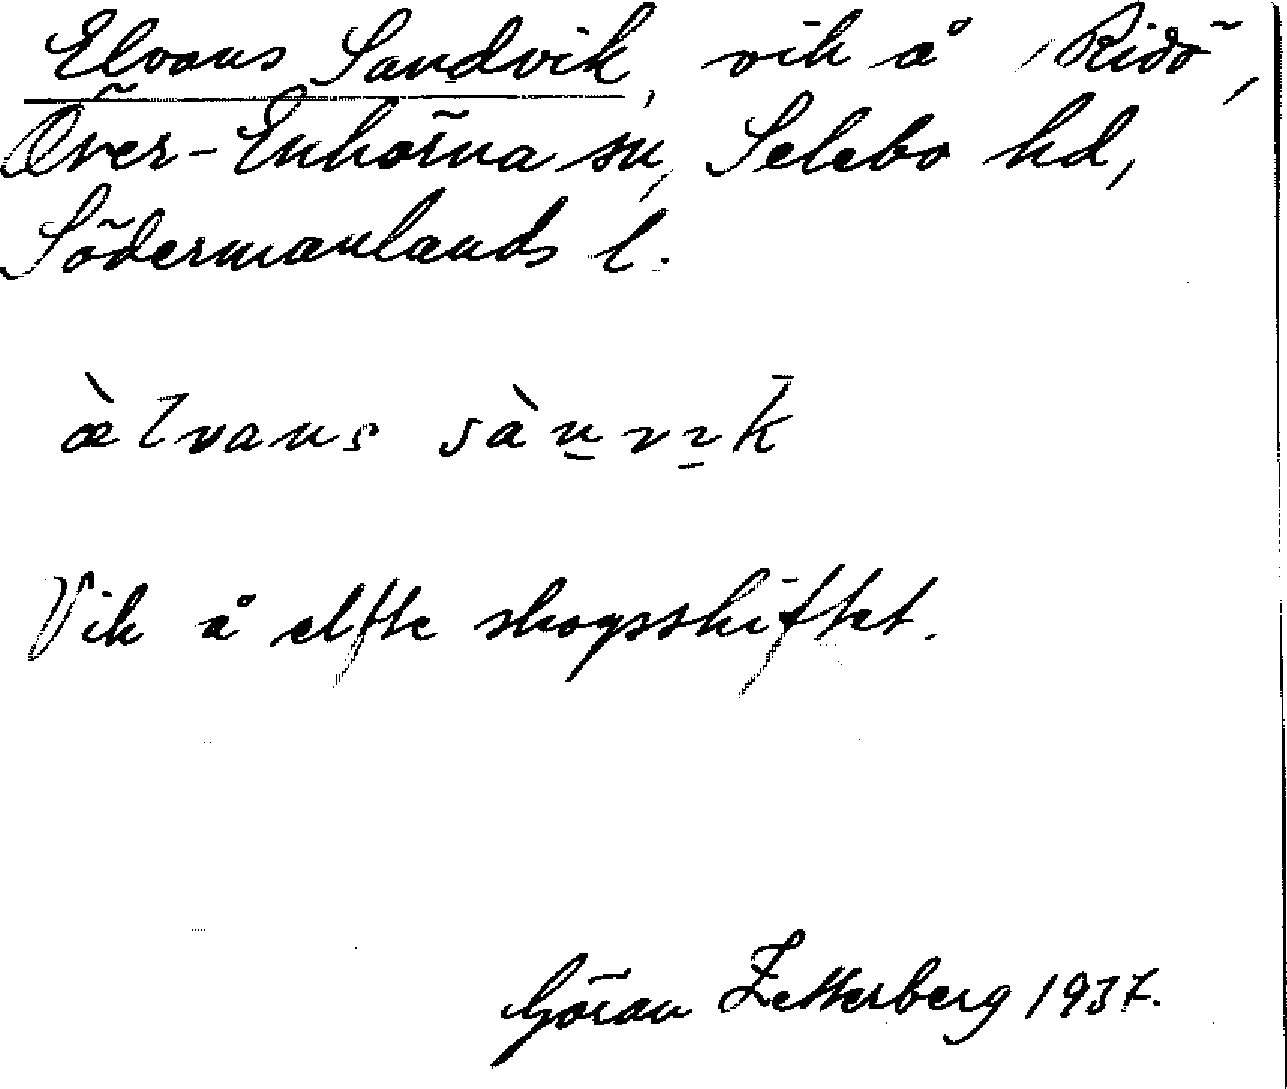 Elvans Sandvik, vik å Ridö,
Över-Enhörna sn, Selebo hd,
Södermanlands l.
æ̀lvans sàn̠vı̠k̄
Vik å elfte skogsskiftet.
Göran Zetterberg 1937.